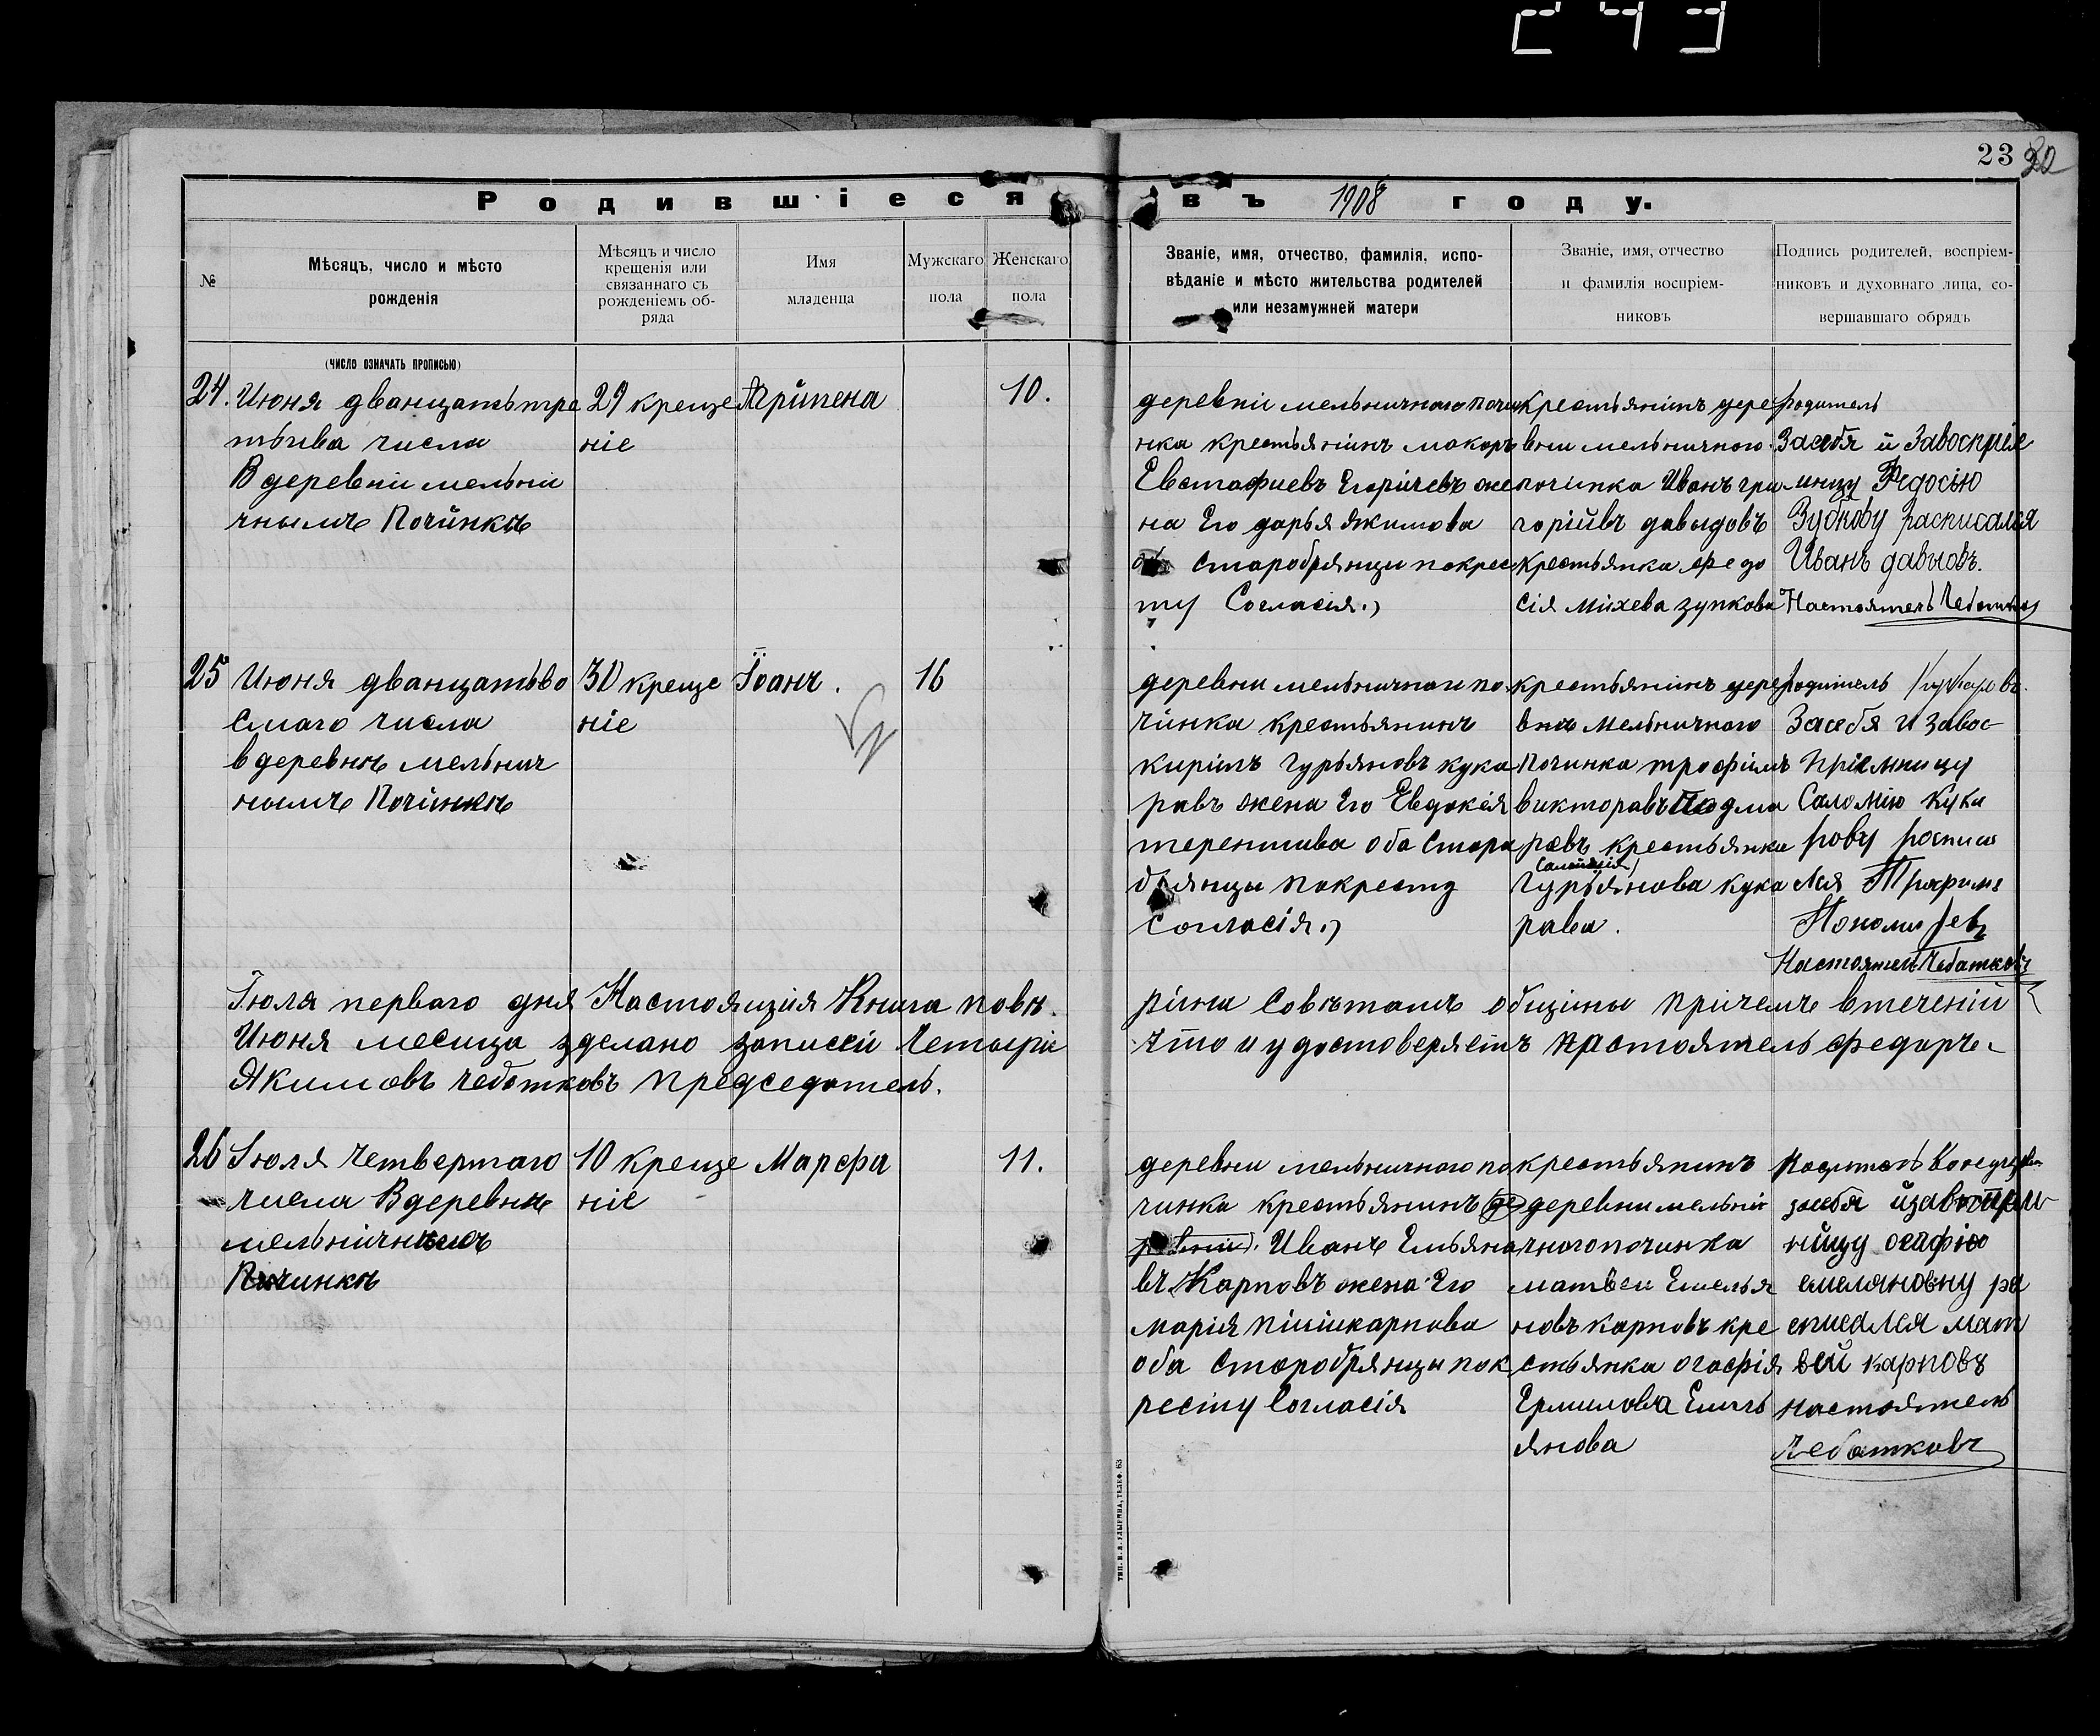 243
23 32
Родившіеся въ 1908 году.
№
Мѣсяцъ, число и мѣсто
рожденія
Мѣсяцъ и число
крещенія или
связаннаго съ
рожденіемъ об-
ряда
Имя
младенца
Мужскаго
пола
Женскаго
пола
Званіе, имя, отчество, фамилія, испо-
вѣданіе и мѣсто жительства родителей
или незамужней матери
Званіе, имя, отчество
и фамилія воспріем-
никовъ
Подпись родителей, воспріем-
никовъ и духовнаго лица, со-
вершавшаго обрядъ
(число означать прописью)
24.
Июня дванцатьтре
тьива числа
В деревніи мельни
чнымъ Починкѣ
29 креще
ніе
Агрипена
10.
деревніи мельничнаго почи
нка крестьянинъ макоръ
Евстафиевъ Егоричевъ же
на Его дарья якимова
оба старобрянцы покрес
ту Согласія.)
крестьянинъ дере
вни мельничного
починка Иванъ гри
горійвъ давыдовъ
крестьянка федо
сія михева зупкова
родитель
Засебя и Завоспріе
мницу Федосію
Зубкову расписался
Иванъ давыовъ.
Настоятель Чеботковъ
25
Июня дванцатьво
смаго числа
в деревнѣ мельнич
нымъ Починкѣ
30 креще
ніе
Іоанъ.
16
деревни мельничнаги по
чинка крестьянинъ
кирилъ гурьяновъ кука
равъ жена Его Евдокія
терентива оба стара
брянцы покресту
Согласія.)
крестьянинъ дере
внѣ мельничного
починка трофимъ
викторавъ Понома
ревъ крестьянка
(саломія)
Гурьянова кука
рава.
Родитель Кукаровъ
Засебя и завос-
пріемницу
Саломію Кука
рову росписа
лся Трафимъ
Пономарев
Настоятель Чебатковъ
Іюля перваго дня Настоящія Книга повѣ
ріина Совѣтамъ общины причемъ в теченіи
Июня месица зделано записей Четырія
что и удостоверяетъ настоятель федоръ
Якимовъ чеботковъ председатель.
26
Іюля четвертаго
числа В деревнѣ
мельничнымъ
Починкѣ
10 креще
ніе
Марфа
11.
деревни мельничного по
чинка крестьянинъ (де
ревни). Иванъ Емьяна
въ Карповъ жена Его
марія карпова
оба старобрянцы пок
ресту Согласія
крестьянинъ
деревни мельни
чного починка
матвеи Емелья
новъ карповъ кре
стьянка огафія
Ермилова Емель
янова
засебя изавоспрем
нйцу огафію
емеляновну ра
списался мат
вей карповъ
настоятель
Чебатковъ
ТИП. ТЕЛЕФ. 63